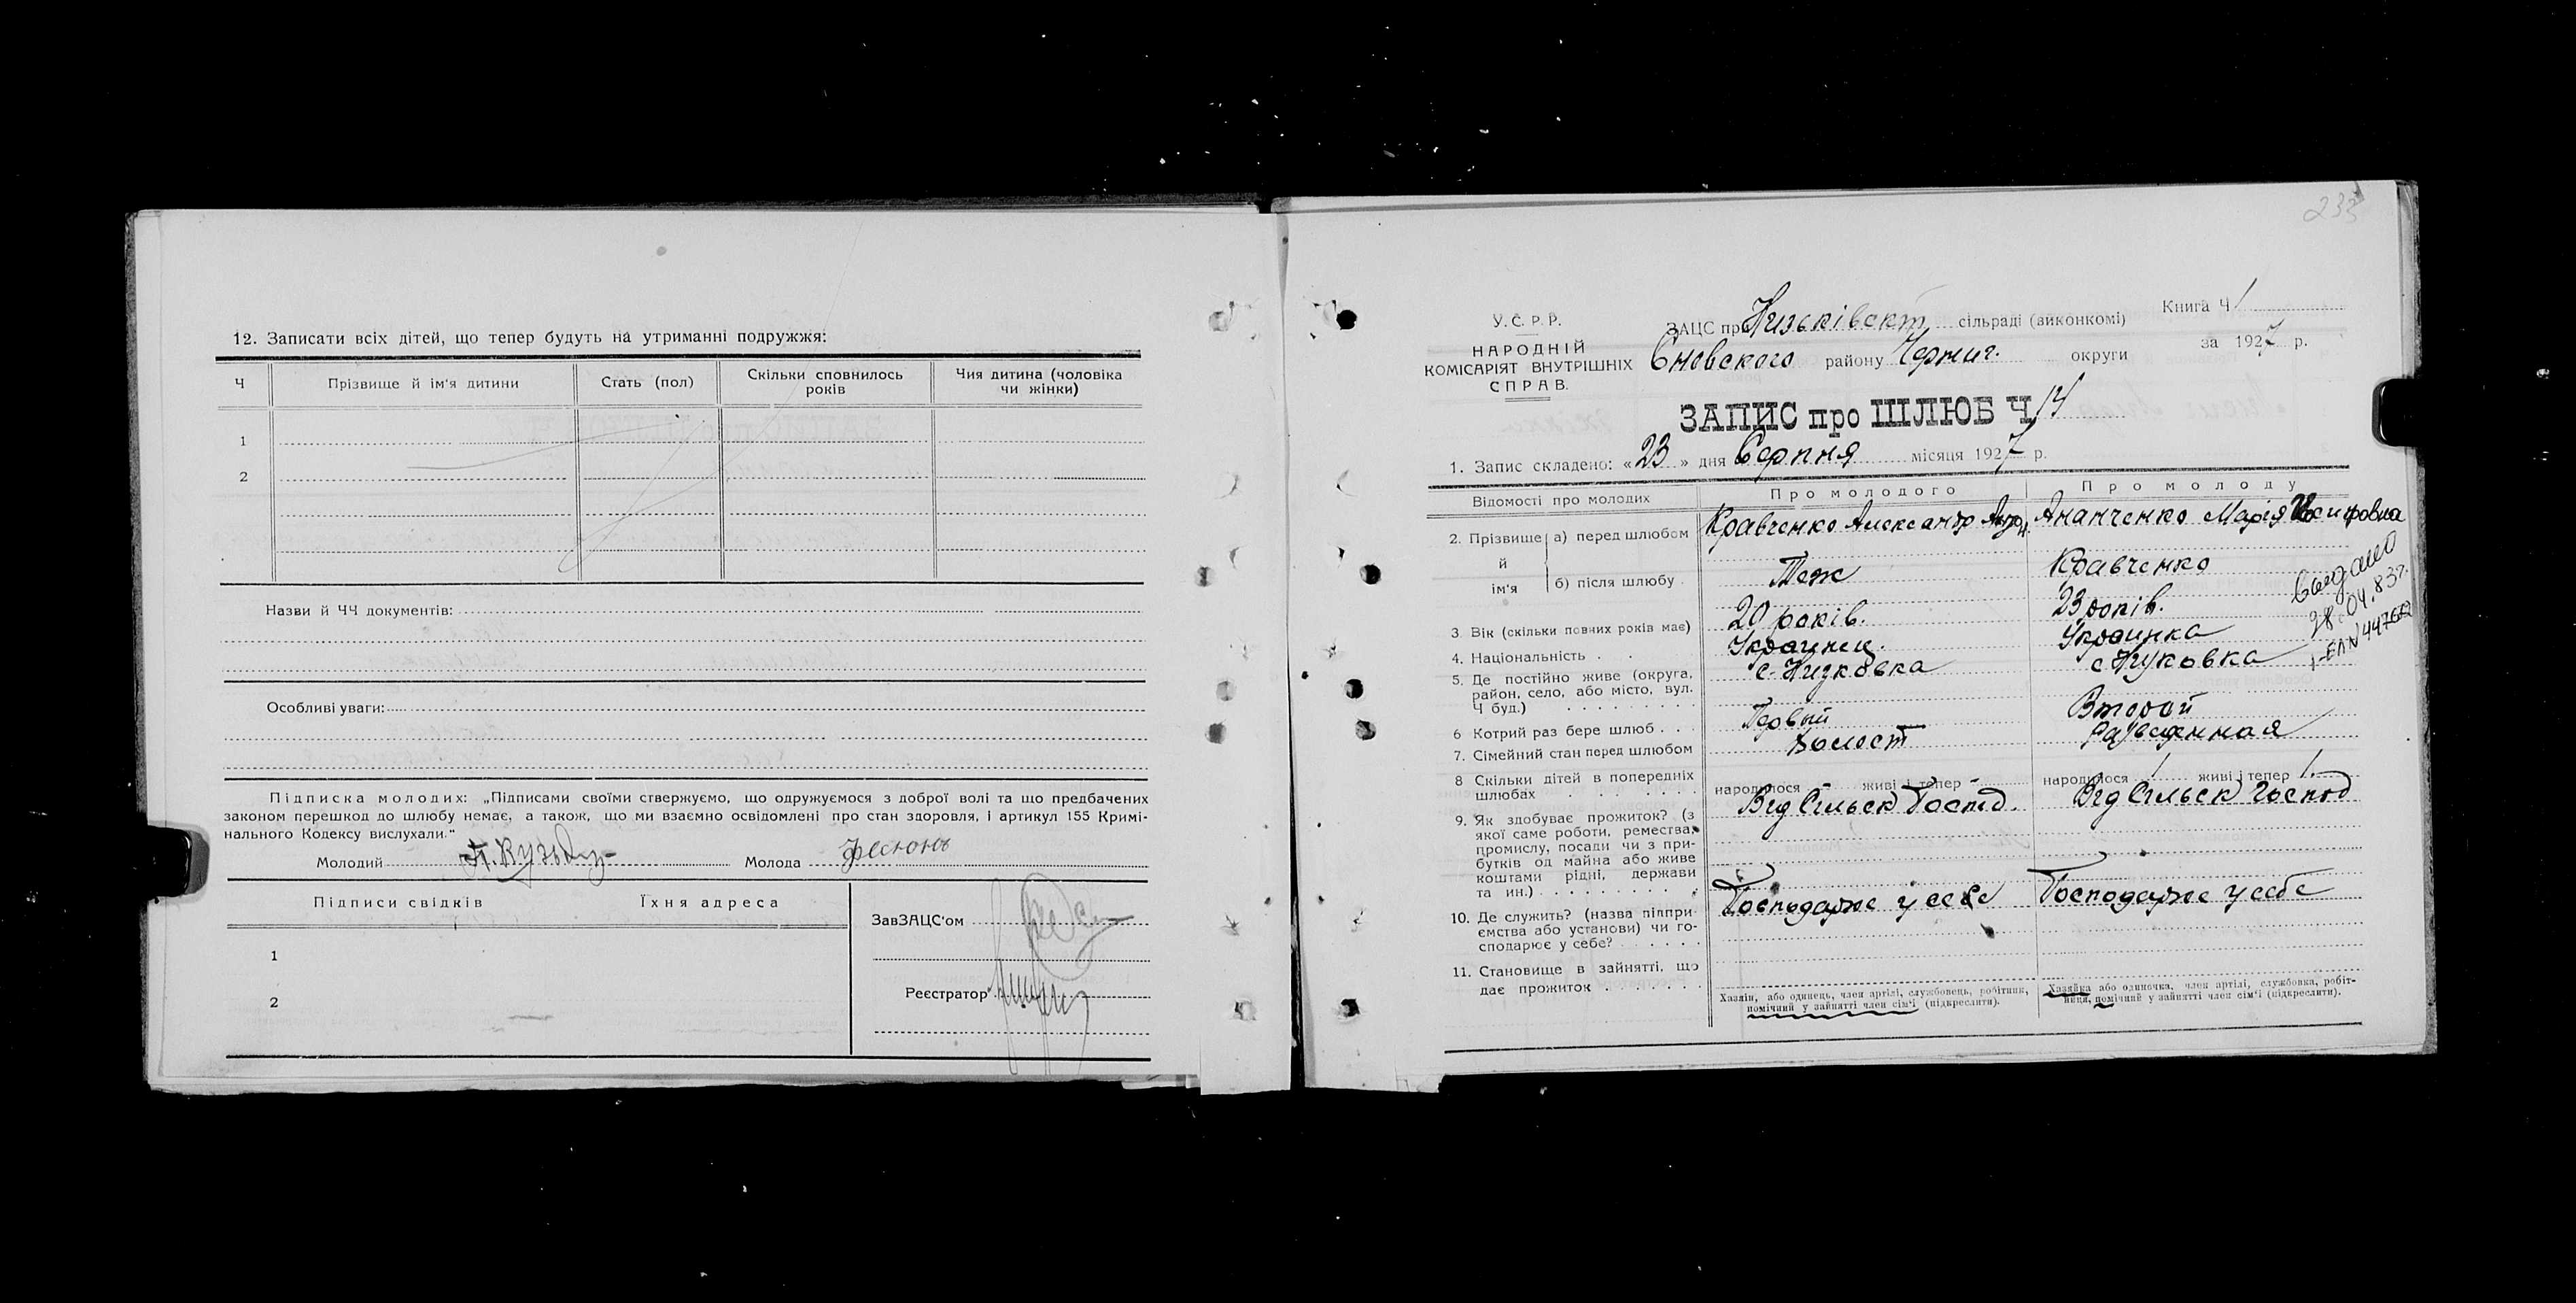 12. Записати всіх дітей, що тепер будуть на утриманні подружжя:
Ч
Прізвище й ім'я дитини
Стать (пол)
Скільки сповнилось років
Чия дитина (чоловіка чи жінки)
1
2
Назви й ЧЧ документів:
Особливі уваги:
Підписка молодих: „Підписами своїми ствержуємо, що одружуємося з доброї волі та що предбачених
законом перешкод до шлюбу немає, а також, що ми взаємно освідомлені про стан здоровля, і артикул 155 Кримі-
нального Кодексу вислухали."
Молодий
Молода
Підписи свідків
Їхня адреса
1
2
ЗавЗАЦС'ом
Реєстратор
233
У. С. Р. Р.
НАРОДНІЙ
КОМІСАРІЯТ ВНУТРІШНІХ
СПРАВ.
ЗАЦС при Низьківскт сільраді (виконкомі)
Сновского району Черниг. округи
Книга Ч 1
за 1927 р.
ЗАПИС про ШЛЮБ Ч 14
1. Запис складено: « 23 » дня Серпня місяця 1927 р.
Відомості про молодих
Про молодого
Про молоду
2. Прізвище й ім'я
а) перед шлюбом
Кравченко Александр
Ананченко Марія Иосифовна
б) після шлюбу
Теж
Кравченко
3 Вік (скільки повних років має)
20 років.
23 років.
4. Національність
Украинец.
Украинка
5. Де постійно живе (округа,
район, село, або місто, вул.
Ч буд.)
с. Низковка
с Низковка
6 Котрий раз бере шлюб
Первый
Второй
7. Сімейний стан перед шлюбом
Холост
Разведенная
8 Скільки дітей в попередніх
шлюбах
народилося - живі і тепер -
народилося 1 живі і тепер 1
9. Як здобуває прожиток? (з
якої саме роботи, ремества,
промислу, посади чи з при-
бутків од майна або живе
коштами рідні, держави
та ин.)
Від Сільск Господ.
Від Сільск Господ
10. Де служить? (назва підпри-
ємства або установи) чи го-
сподарює у себе?
Господарює у себе
Господарює у себе
11. Становище в зайнятті, що
дає прожиток
Хазяїн, або одинець, член артілі, службовець, робітник,
помічний у зайнятті член сім'ї (підкреслити).
Хазяйка або одиночка, член артілі, службовка, робіт-
ниця, помічний у зайнятті член сім'ї (підкреслити).
выдано
28.04.83г.